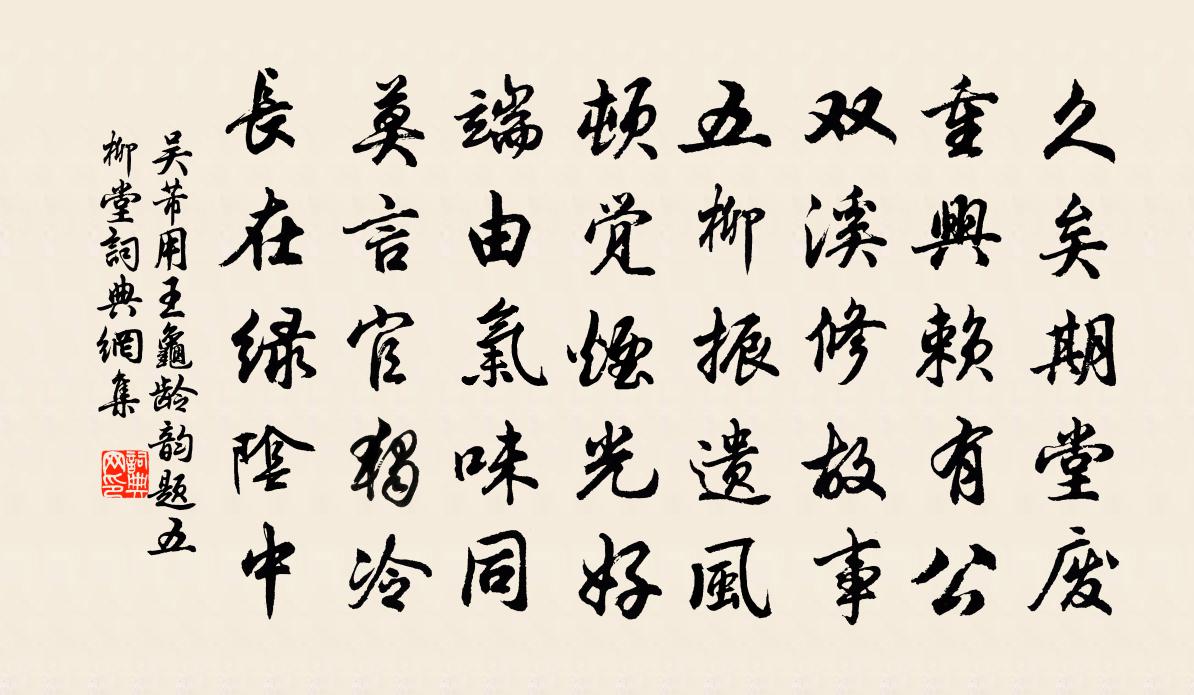 久矣期堂废
重興赖有公
双溪修故事
五柳振遗風
顿觉煙光好
端由氣味同
莫言官独冷
長在绿陰中
吴芾用王龜龄韵题五
柳堂詞典網集
詞典
网印